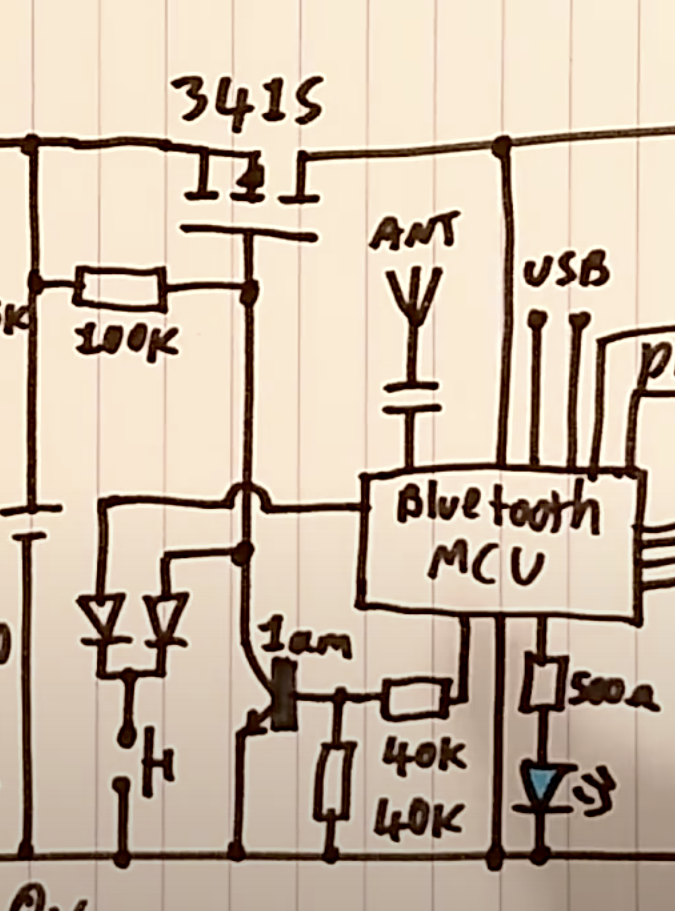 3415
ANT
USB
100K
Bluetooth
MCU
1am
500Ω
40K
40K